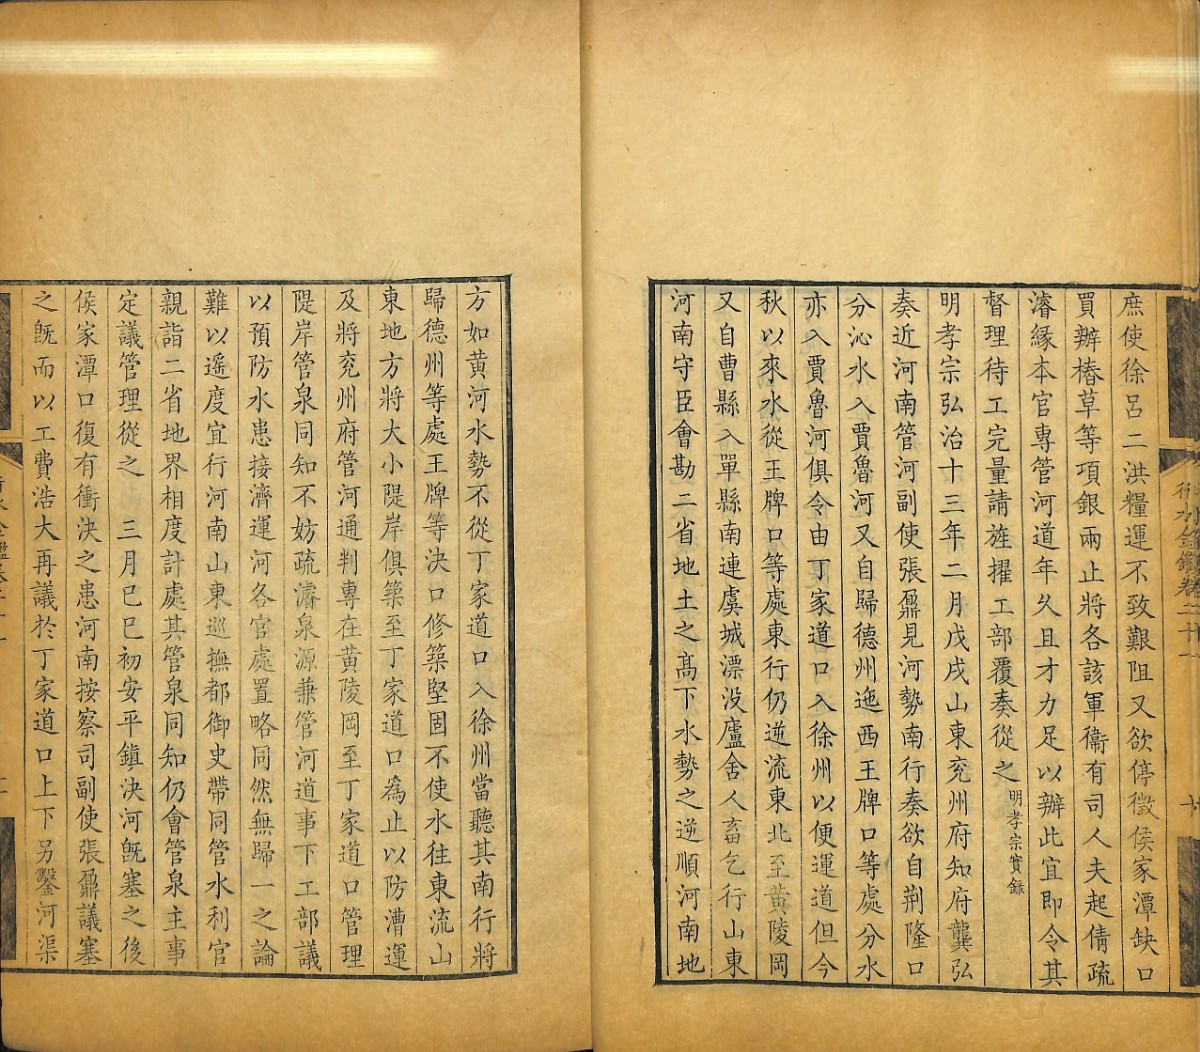 行水金鑑卷二十一
庶使徐呂二洪糧運不致艱阻又欲停徵侯家潭缺口
買辦樁草等項銀兩止將各該軍衞有司人夫起倩疏
濬緣本官專管河道年久且才力足以辦此宜即令其
督理待工完量請旌擢工部覆奏從之 明孝宗實錄
明孝宗弘治十三年二月戊戌山東兗州府知府龔弘
奏近河南管河副使張鼐見河勢南行奏欲自荆隆口
分沁水入賈魯河又自歸德州迤西王牌口等處分水
亦入賈魯河俱令由丁家道口入徐州以便運道但今
秋以來水從王牌口等處東行仍逆流東北至黄陵岡
又自曹縣入單縣南連虞城漂没廬舍人畜乞行山東
河南守臣會勘二省地土之髙下水勢之逆順河南地
方如黄河水勢不從丁家道口入徐州當聽其南行將
歸德州等處王牌等決口修築堅固不使水往東流山
東地方將大小隄岸俱築至丁家道口爲止以防漕運
及將兗州府管河通判專在黄陵岡至丁家道口管理
隄岸管泉同知不妨疏濬泉源兼管河道事下工部議
以預防水患接濟運河各官處置略同然無歸一之論
難以遥度宜行河南山東巡撫都御史帶同管水利官
親詣二省地界相度計處其管泉同知仍會管泉主事
定議管理從之 三月己巳初安平鎮決河旣塞之後
侯家潭口復有衝決之患河南按察司副使張鼐議塞
之旣而以工費浩大再議於丁家道口上下另鑿河渠